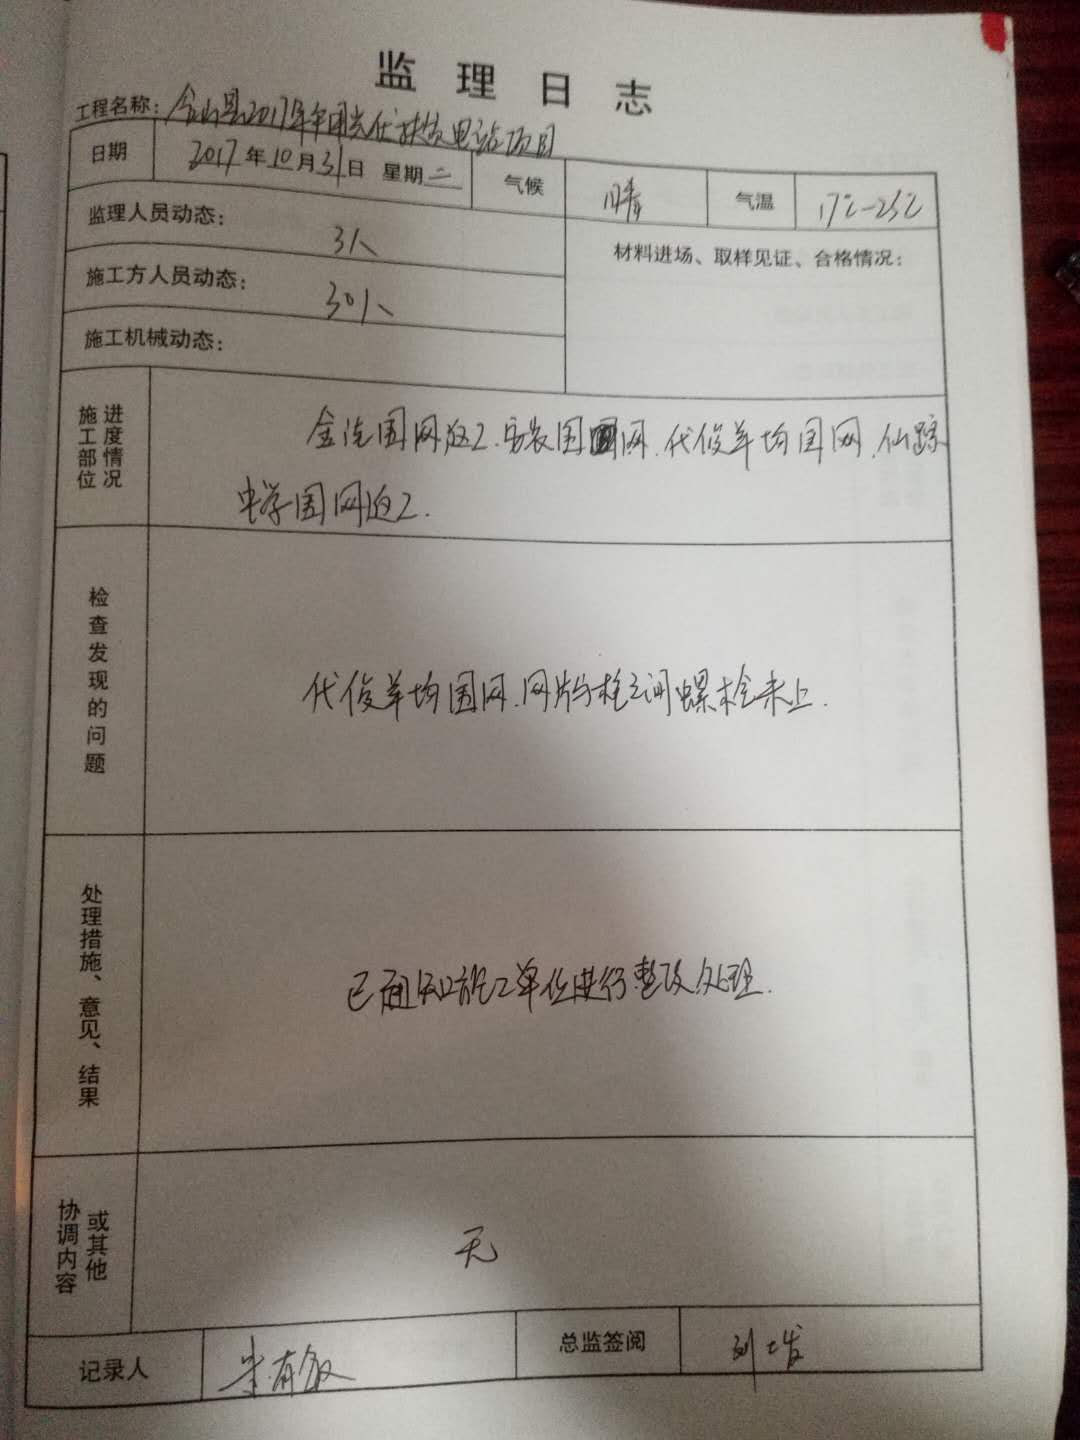 监理日志
工程名称：含山县2017年第 光伏扶贫电站项目
日期 2017年10月31日 星期二 气候 晴 气温 17℃-25℃
监理人员动态： 3人
材料进场、取样见证、合格情况：
施工方人员动态： 30人
施工机械动态：
施工部位进度情况
围网返工.安装围网.代俊羊均围网.仙踪
中学围网返工.
检查发现的问题
代俊羊均围网.网片与柱之间螺栓未上.
处理措施、意见、结果
已通知施工单位进行整改处理.
协调内容或其他
无
记录人 总监签阅